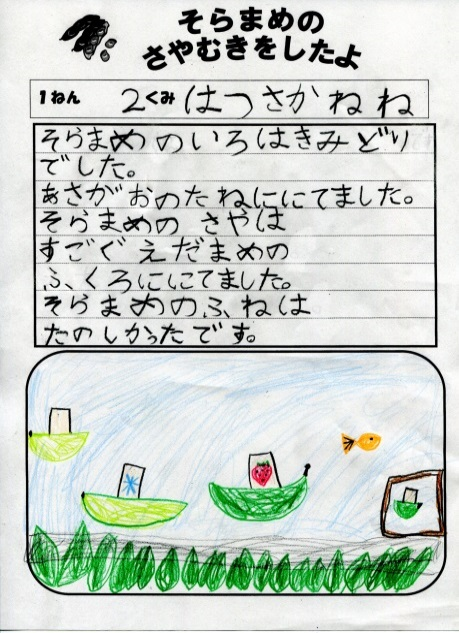 そらまめの
さやむきをしたよ
1ねん 2くみ はつさかねね
そらまめのいろはきみどり
でした。
あさがおのたねににてました。
そらまめの さやは
すごぐえだまめの
ふくろににてました。
そらまめのふねは
たのしかったです。